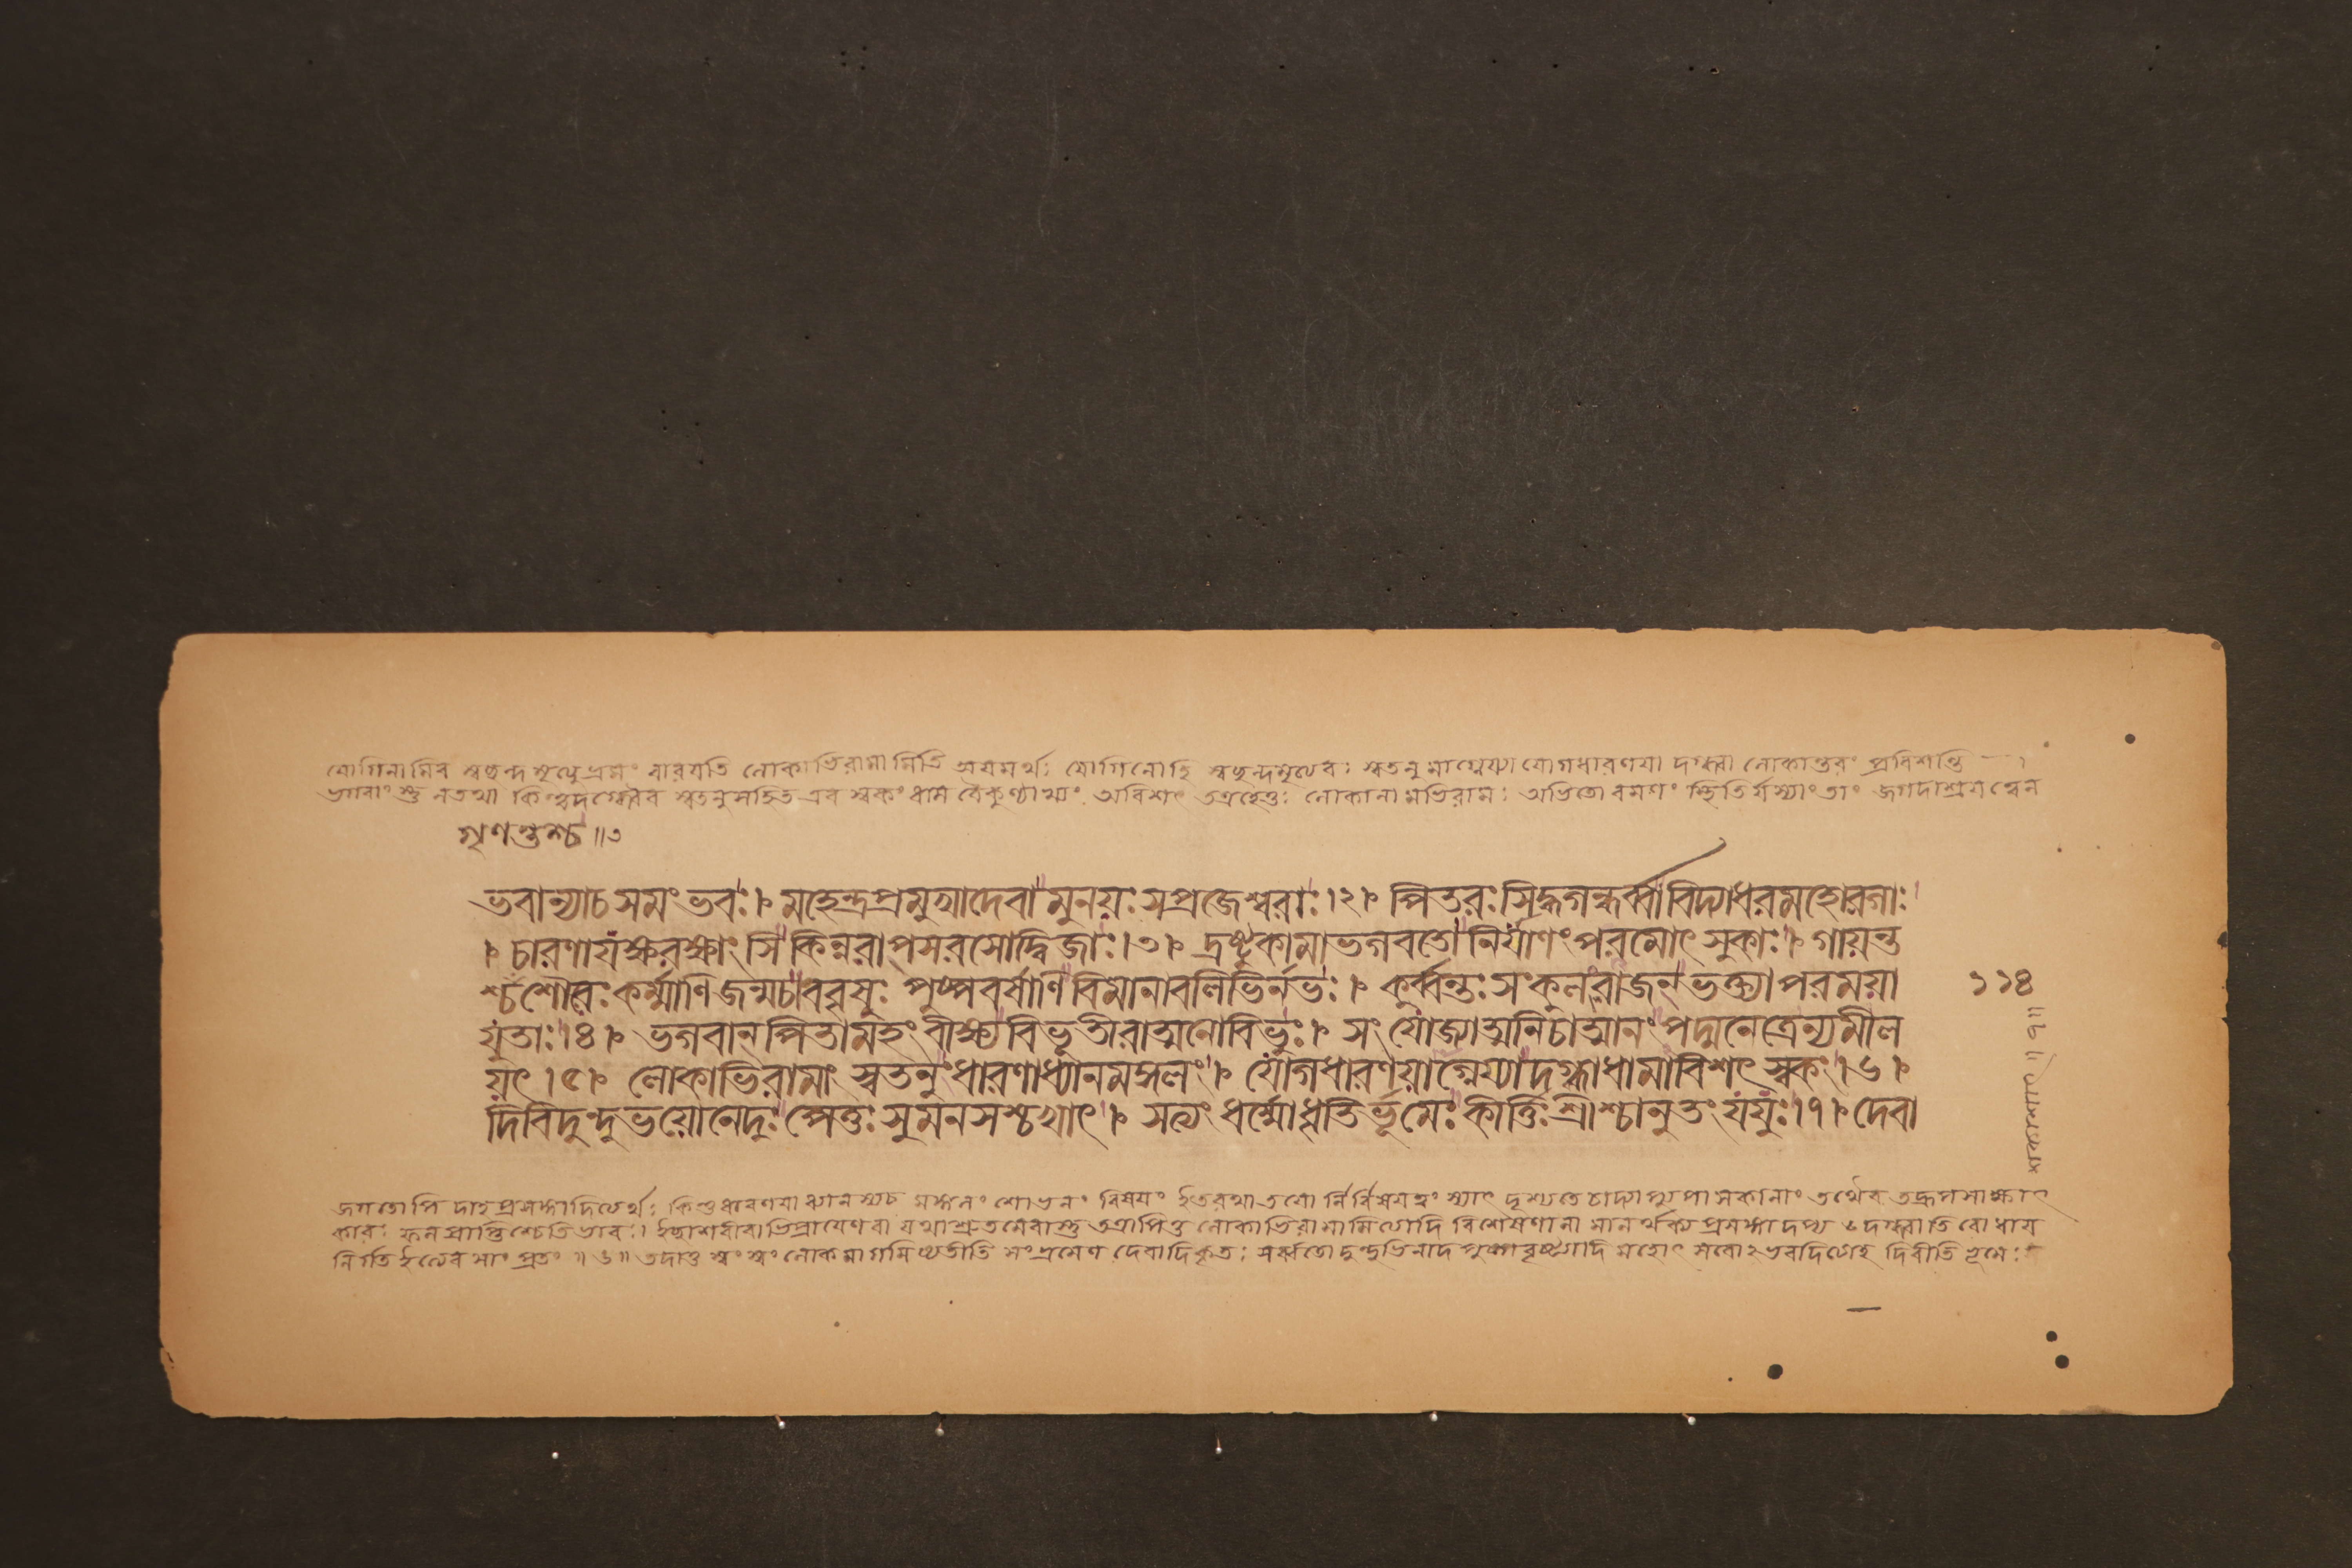 যোগিনামিব স্বচ্ছন্দমৃত্যুভ্রমং বারয়তি লোকাভিরামামিতি অয়মর্থঃ যোগিনোহি স্বচ্ছন্দমৃত্যবঃ স্বতনুমাগ্নেয্যা যোগধারণয়া দগ্ধ্বা লোকান্তরং প্রবিশন্তি
ভগবাংস্তু নতথা কিন্ত্বদগ্ধ্বৈব স্বতনুসহিত এব স্বকং ধাম বৈকুণ্ঠাখ্যং অবিশৎ তত্রহেতুঃ লোকানামভিরামঃ অভিতো রমণং স্থিতির্যস্যাং তাং জগদাশ্রয়ত্বেন
গৃণন্তশ্চ ॥৩
ভবান্যাচসমং ভবঃ। মহেন্দ্রপ্রমুখাদেবা মুনয়ঃ সপ্রজেশ্বরাঃ।২। পিতরঃ সিদ্ধগন্ধর্ব্বা বিদ্যাধরমহোরগাঃ
। চারণাযক্ষরক্ষাংসি কিন্নরাপসরসোদ্বিজাঃ।৩। দ্রষ্টুকামাভগবতো নির্যাণং পরমোৎসুকাঃ। গায়ন্ত
শ্চশৌরেঃ কর্ম্মাণি জন্মচ। ববৃষুঃ পুষ্পবর্ষাণি বিমানাবলিভির্নভঃ। কুর্ব্বন্তঃ সংকুলংরাজন্ ভক্ত্যা পরময়া
যুতাঃ।৪। ভগবান্ পিতামহং বীক্ষ্য বিভূতীরাত্মনোবিভুঃ। সংযোজ্যাত্মনিচাত্মানং পদ্মনেত্রেন্যমীল
য়ৎ।৫। লোকাভিরামাং স্বতনুং ধারণাধ্যানমঙ্গলং। যোগধারণয়াগ্নেয্যাদগ্ধ্বাধামাবিশৎ স্বকং।৬।
দিবিদুন্দুভয়োনেদুঃ পেতুঃ সুমনসশ্চখাৎ। সত্যং ধর্ম্মোধৃতির্ভূমেঃ কীর্ত্তিঃ শ্রীশ্চানুতং যযুঃ।৭। দেবা
১১৪
জগতোপি দাহপ্রসঙ্গাদিত্যর্থঃ কিঞ্চধারণয়া ধ্যানস্যচ মঙ্গলং শোভনং বিষয়ং ইতরথাতয়োর্নির্বিষয়ত্বং স্যাৎ দৃশ্যতেচাদ্যাপ্যুপাসকানাং তথৈব তদ্রূপসাক্ষাৎ
কারঃ ফলপ্রাপ্তিশ্চেতিভাবঃ। ইচ্ছাশরীরাভিপ্রায়েণ বা যথাশ্রুতমেবাস্তু তত্রাপিতু লোকাভিরামামিত্যাদি বিশেষণানামানর্থক্যপ্রসঙ্গাদপ্য
দিবীতি ভূমেঃ
আকাশাৎ ॥৭॥